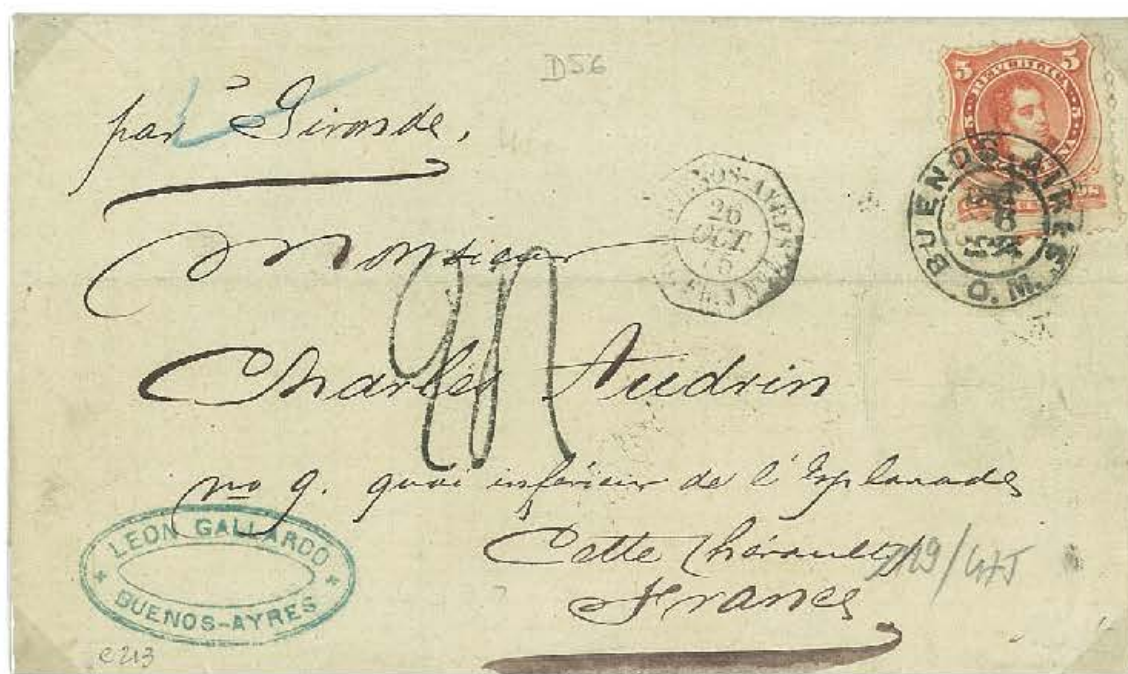 D56
par Gironde,
5 REPUBLICA 5
BUENOS-AIRES
O. M.
BUENOS-AYRES
26
OCT
Monsieur
Charles Audrin
no 9. quai inférieur de l'Esplanade
Cette (hérault)
France
LEON GALLARDO
BUENOS-AYRES
c213